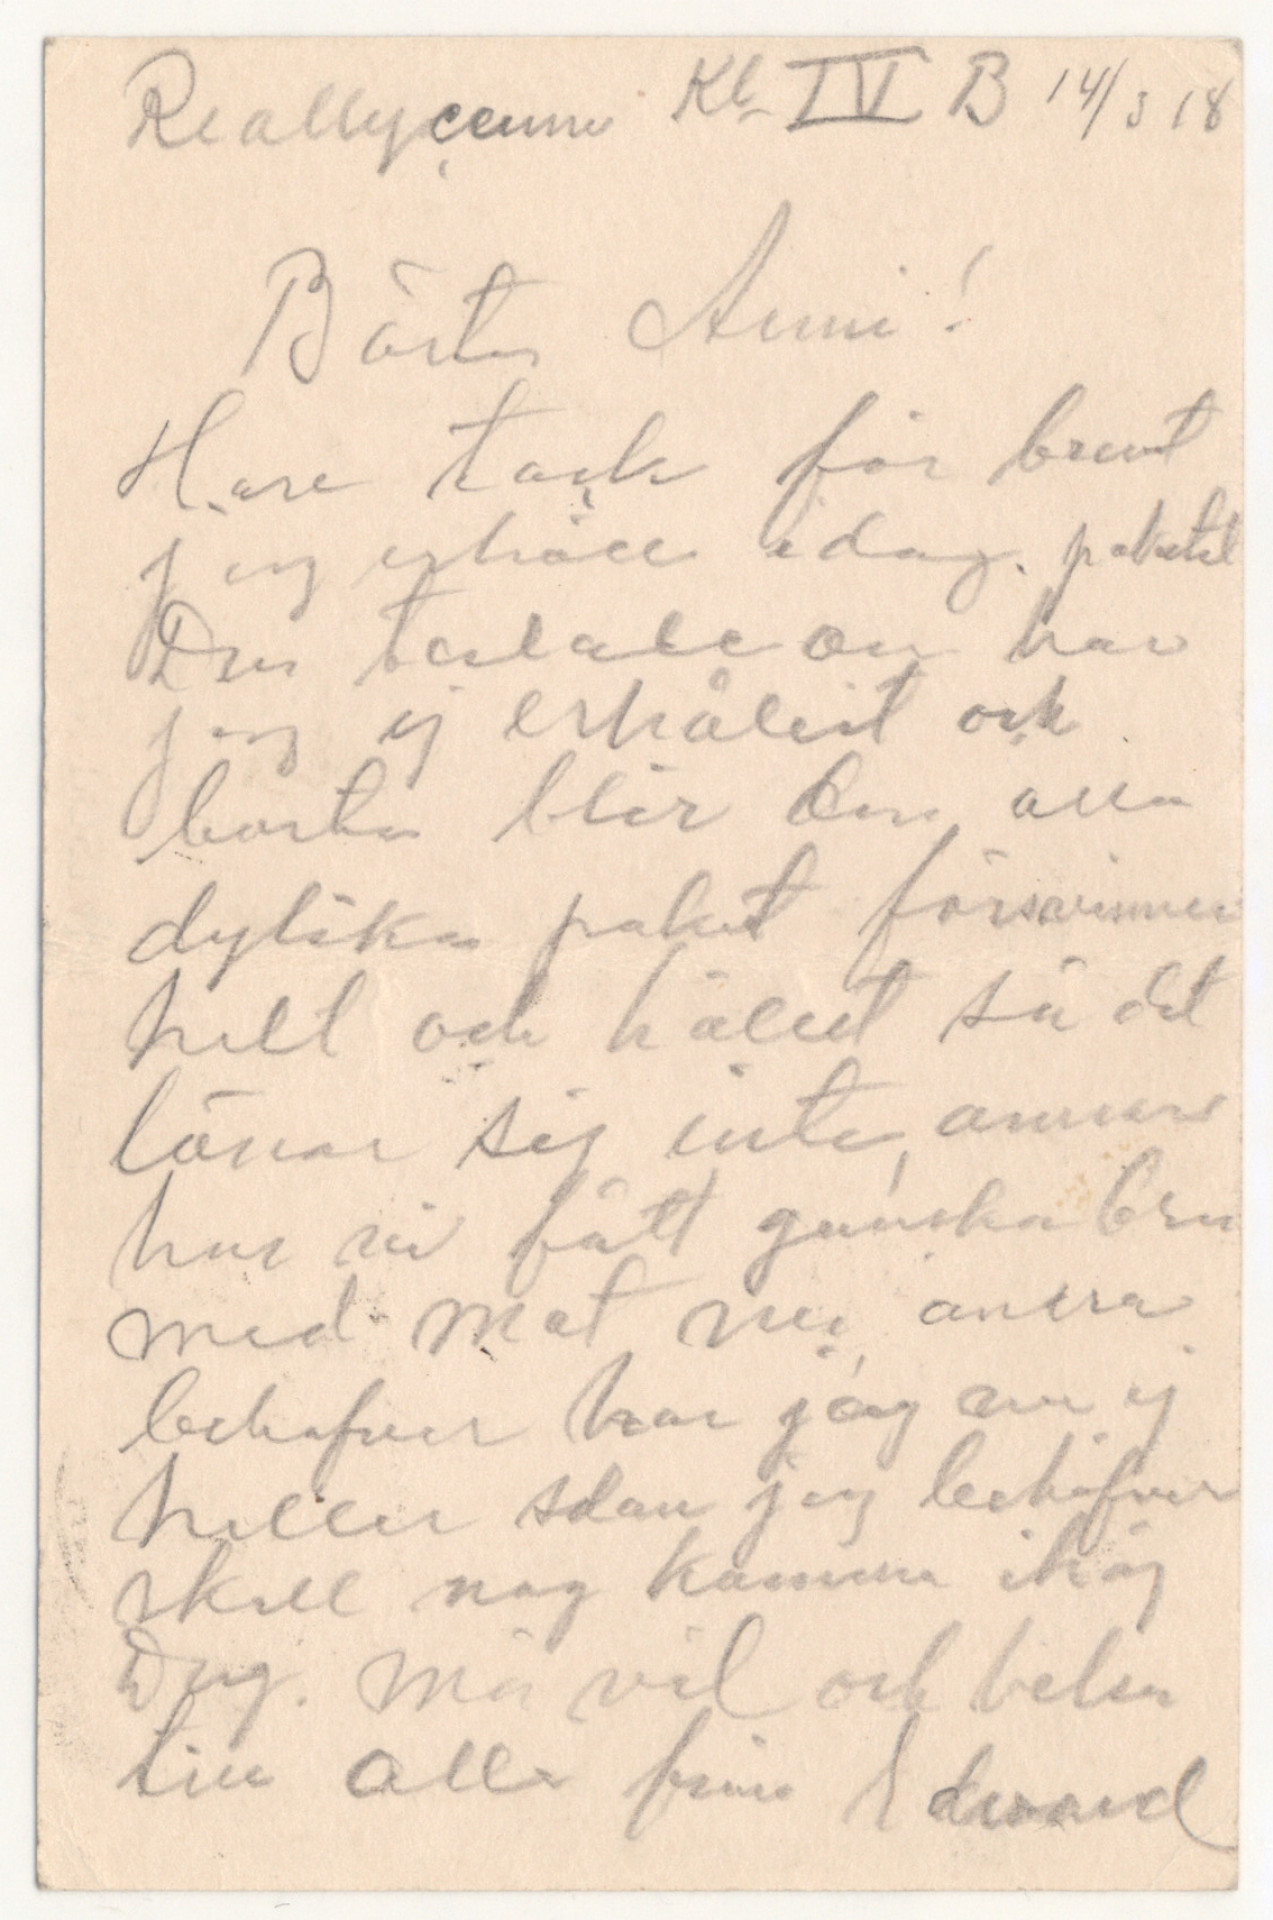 Reallyceum Kl. IV B 14/3 18
Bästa Anni!
Hav tack för brevet
jag erhöll idag. paketet
Du talade om har
jag ej erhållit och
borta blir den alla
dylika paket försvinner
helt och hållet så det
lönar sig inte, annars
har vi fått ganska bra
med mat nu, andra
behöfver har jag nu ej
heller sdan jag behöfver
skall nog komma ihåg
Dig. Må väl och helsa
till alla från Edward